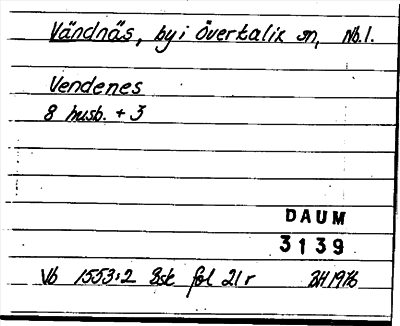 Vändnäs, by i Överkalix sn, Nb.l.
Vendenes
8 husb. + 3
DAUM
3139
Vb 1553:2 Bsk fol 21 r BH 1976